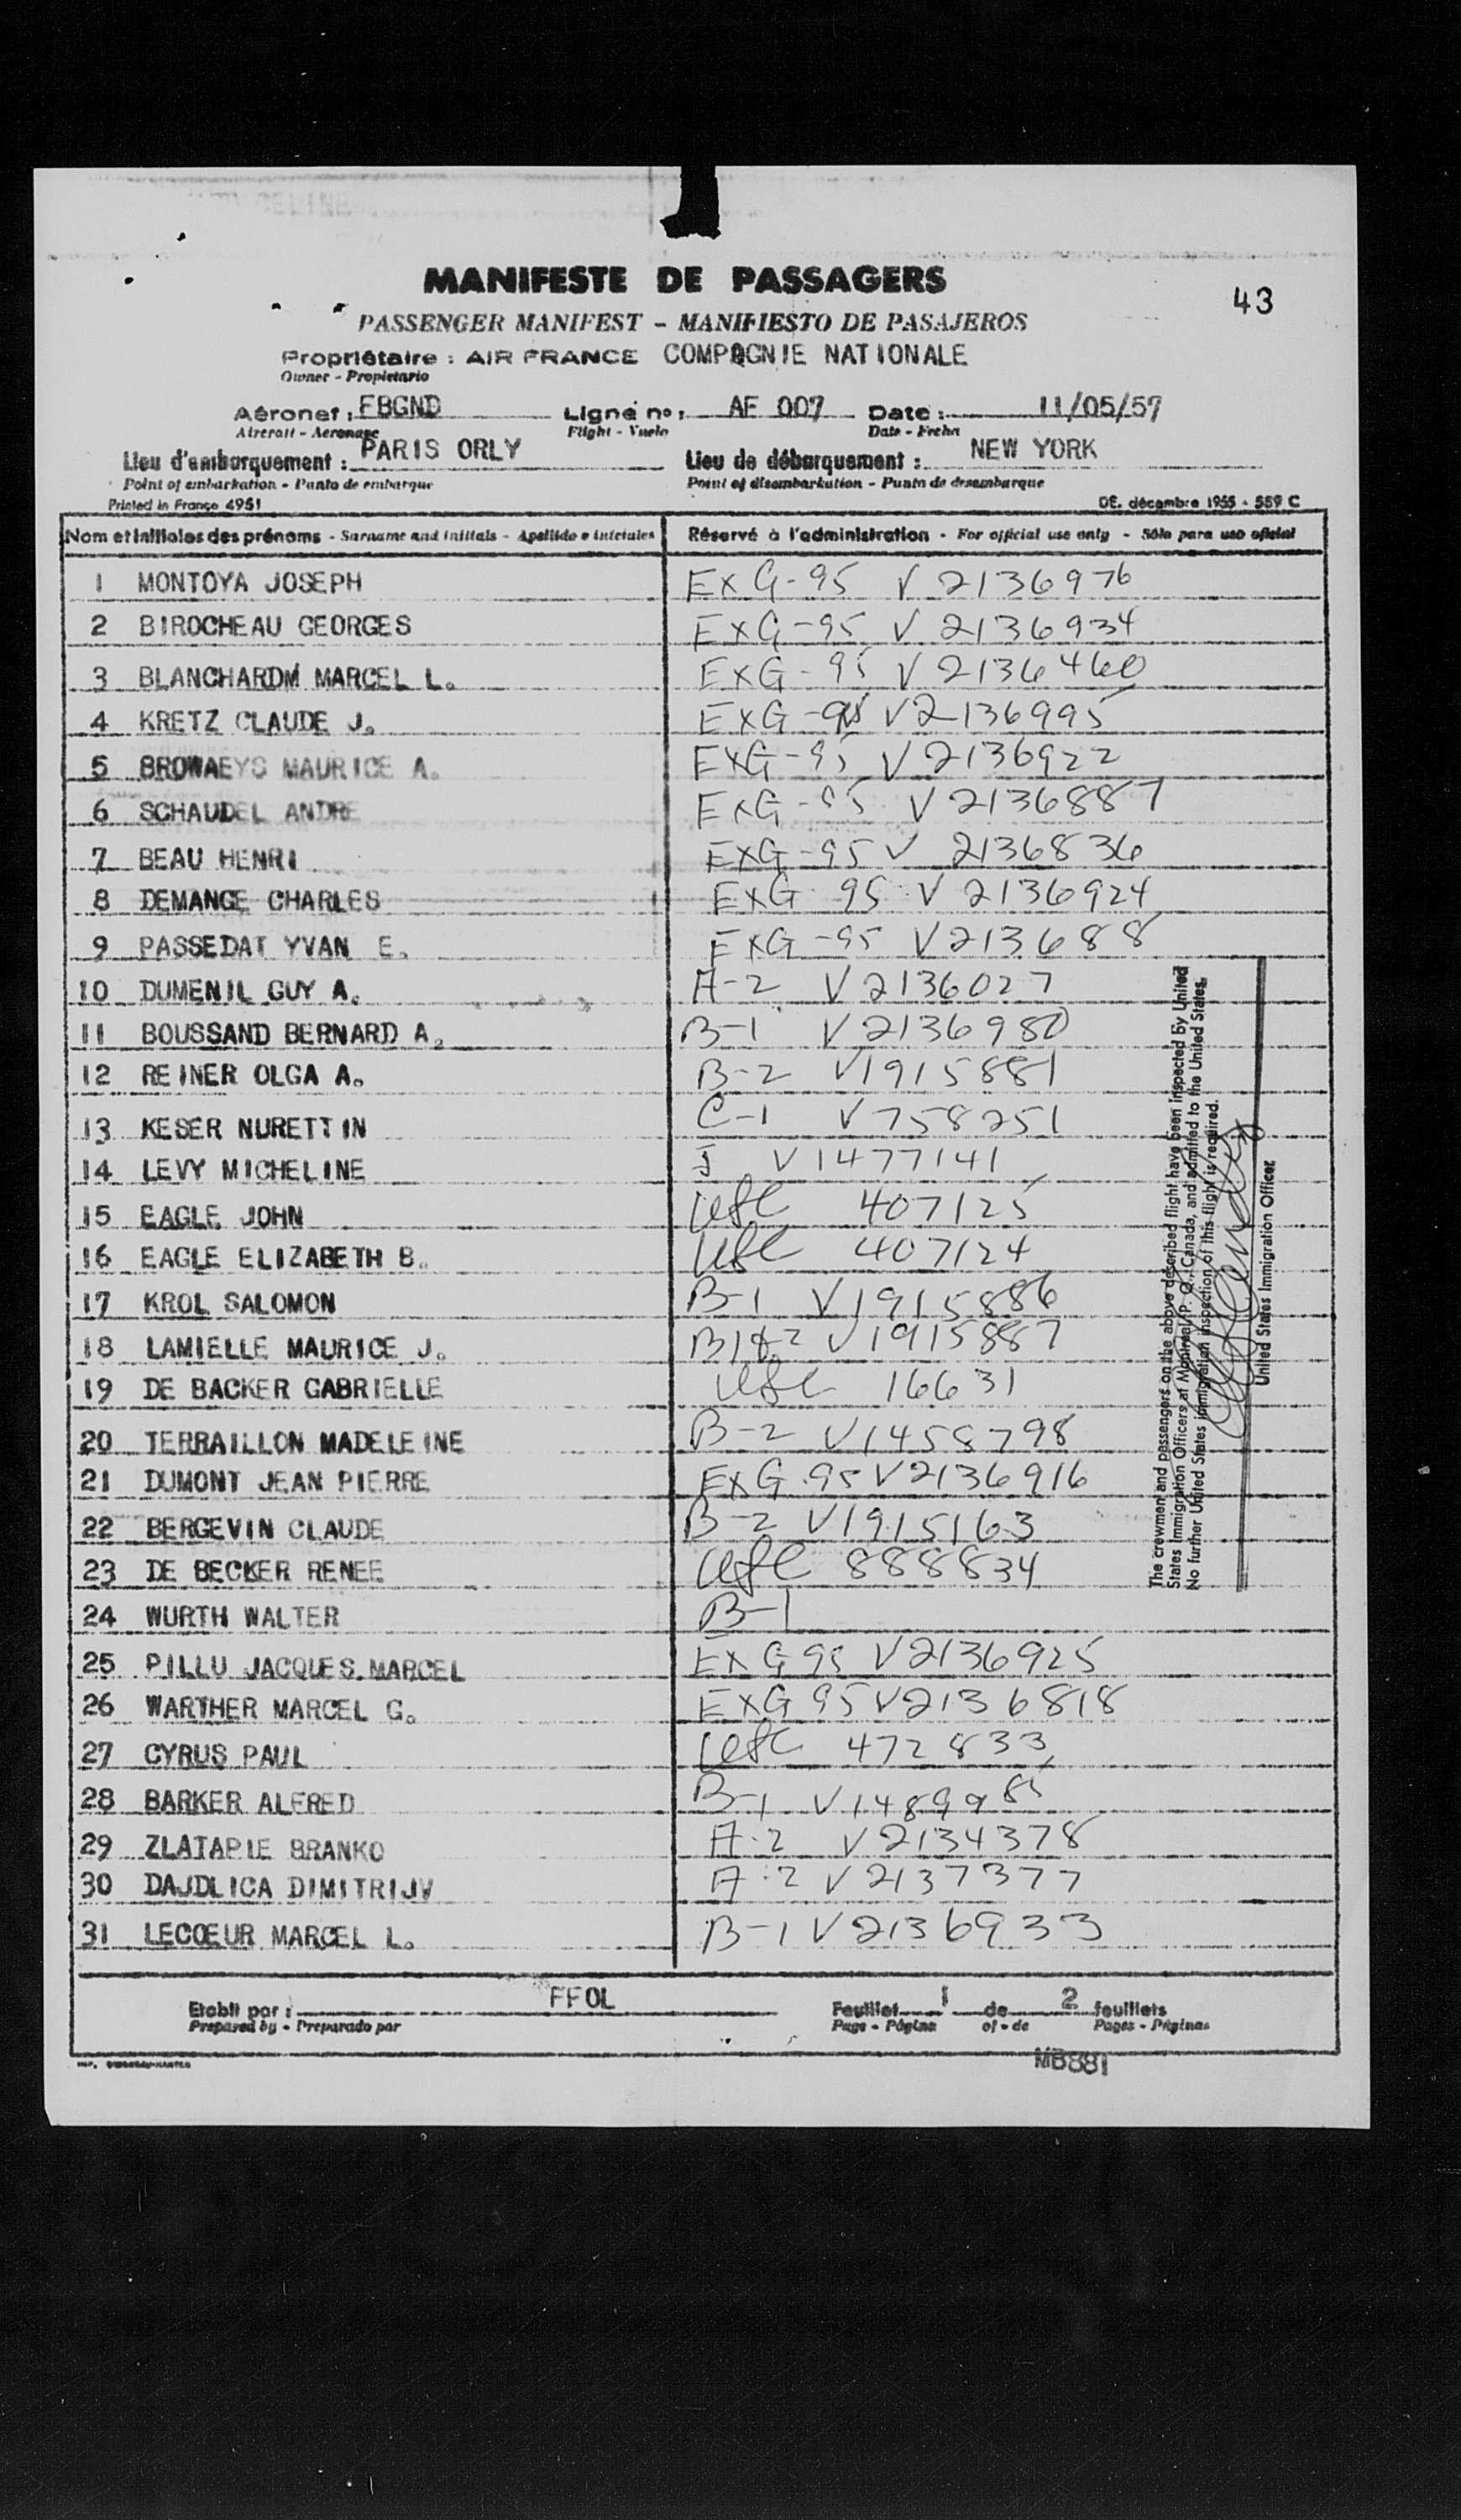 43
MANIFESTE DE PASSAGERS
PASSENGER MANIFEST - MANIFIESTO DE PASAJEROS
Propriétaire : AIR FRANCE COMPAGNIE NATIONALE
Owner - Propietario
Aéronef : FBGND Ligne no : AF 007 Date : 11/05/57
Aircraft - Aeronave Flight - Vuelo Date - Fecha
Lieu d'embarquement : PARIS ORLY Lieu de débarquement : NEW YORK
Point of embarkation - Punto de embarque Point of disembarkation - Punto de desembarque
Printed in France 4951 DE. décembre 1955 - 559 C
Nom et initiales des prénoms - Surname and initials - Apellido e iniciales Réservé à l'administration - For official use only - Sólo para uso oficial
1 MONTOYA JOSEPH ExG-95 V 2136976
2 BIROCHEAU GEORGES ExG-95 V 2136934
3 BLANCHARDM MARCEL L. ExG-95 V 2136460
4 KRETZ CLAUDE J. ExG-95 V 2136995
5 BROWAEYS MAURICE A. ExG-95 V 2136922
6 SCHAUDEL ANDRE ExG-95 V 2136887
7 BEAU HENRI ExG-95 V 2136836
8 DEMANGE CHARLES ExG 95 V 2136924
9 PASSEDAT YVAN E. ExG-95 V213688
10 DUMENIL GUY A. A-2 V 2136027
11 BOUSSAND BERNARD A. B-1 V 2136980
12 REINER OLGA A. B-2 V1915881
13 KESER NURETTIN C-1 V758251
14 LEVY MICHELINE J V1477141
15 EAGLE JOHN USC 407125
16 EAGLE ELIZABETH B. USC 407124
17 KROL SALOMON B-1 V1915886
18 LAMIELLE MAURICE J. B1&2 V1915887
19 DE BACKER GABRIELLE USC 16631
20 TERRAILLON MADELEINE B-2 V1458798
21 DUMONT JEAN PIERRE ExG 95 V2136916
22 BERGEVIN CLAUDE B-2 V1915163
23 DE BECKER RENEE USC 888834
24 WURTH WALTER B-1
25 PILLU JACQUES.MARCEL ExG 95 V2136925
26 WARTHER MARCEL G. ExG 95 V2136818
27 CYRUS PAUL USC 472833
28 BARKER ALFRED B-1 V1489985
29 ZLATARIE BRANKO A-2 V2134378
30 DAJDLICA DIMITRIJV A-2 V2137377
31 LECŒUR MARCEL L. B-1 V2136933
The crewmen and passengers on the above described flight have been inspected by United
States Immigration Officers at Montreal, P. Q., Canada, and admitted to the United States.
No further United States immigration inspection of this flight is required.
United States Immigration Officer
Etabli par : FFOL Feuillet 1 de 2 feuillets
Prepared by - Preparado por Page - Página of - de Pages - Páginas
MB881